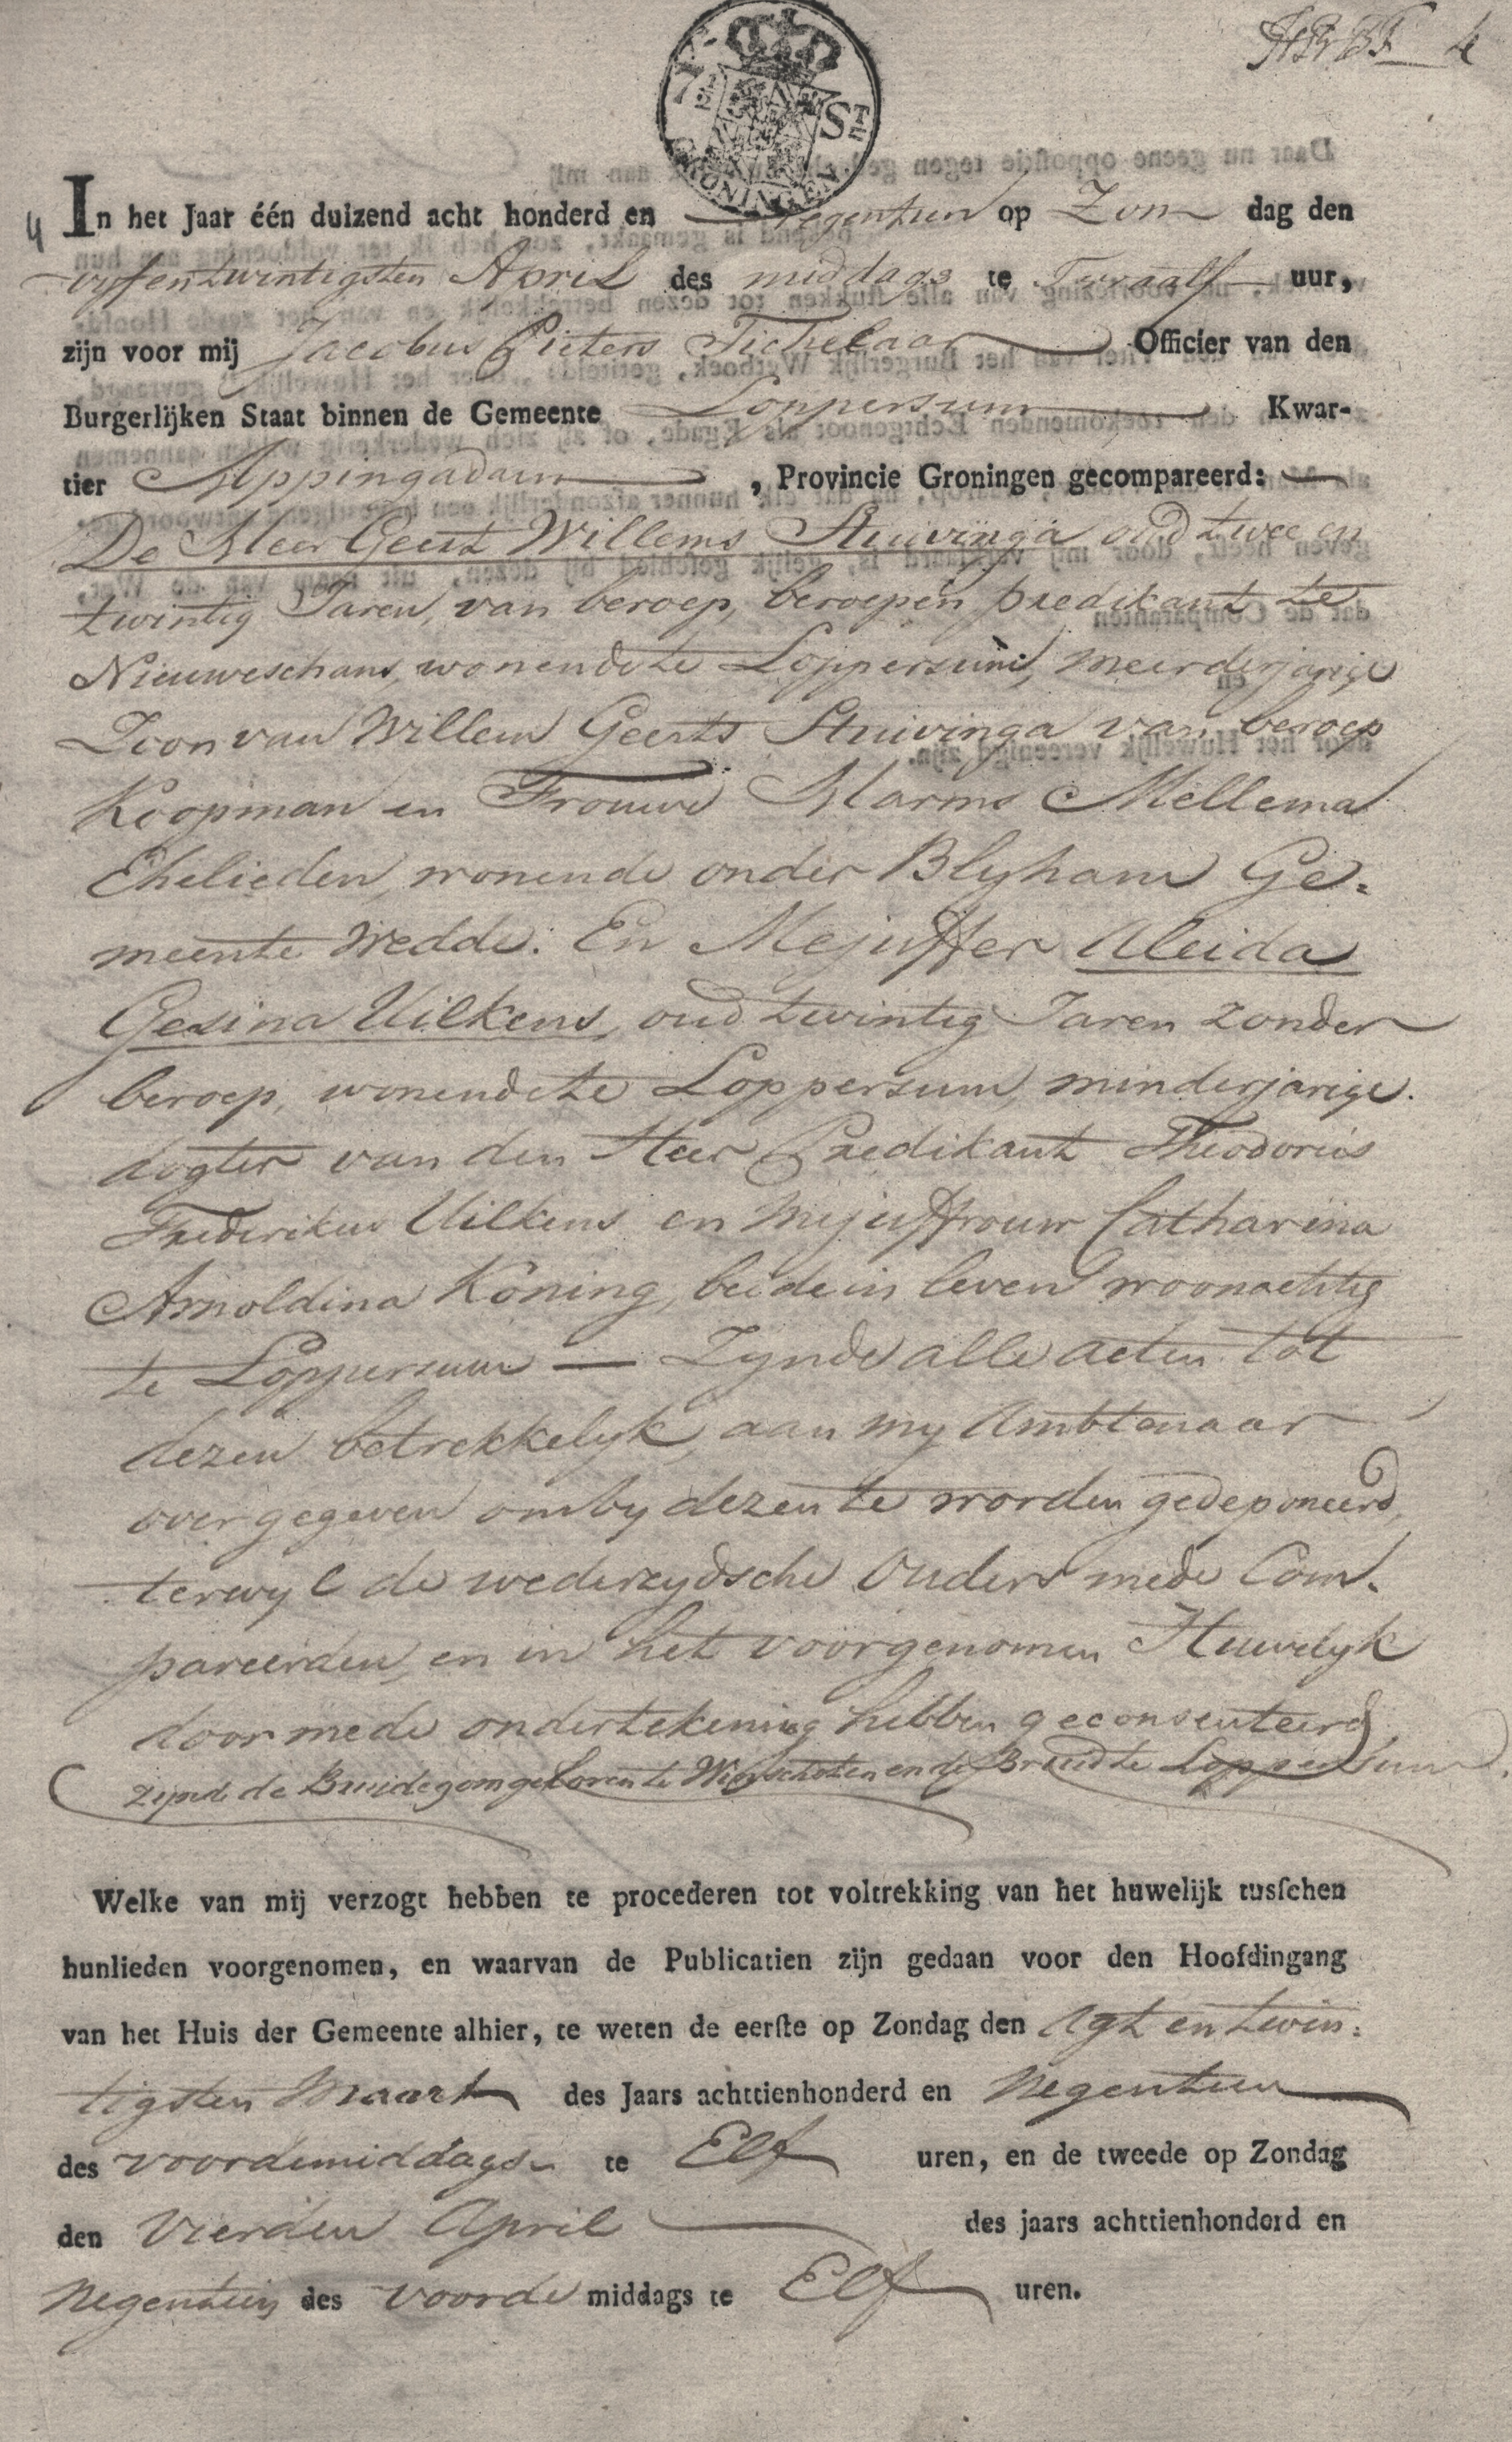 4
7½ St.
GRONINGEN
In het Jaar één duizend acht honderd en negentien op Zon dag den
vyfentwintigsten April des middags te Twaalf uur,
zijn voor mij Jacobus Pieters Tichelaar Officier van den
Burgerlijken Staat binnen de Gemeente Loppersum Kwar-
tier Appingadam, Provincie Groningen gecompareerd:
De Heer Geert Willems Stuivinga oud twee en
twintig Jaren, van beroep, beroepen predikant te
Nieuweschans, wonende te Loppersum, meerderjarige
Zoon van Willem Geerts Stuivinga van beroep
Koopman en Frouwe Harms Mellema
Ehelieden, wonende onder Blyham Ge=
meente Wedde. En Mejuffer Aleida
Gesina Uilkens, oud twintig Jaren zonder
beroep, wonende te Loppersum, minderjarige
dogter van den Heer Predikant Theodorus
Frederikus Uilkens en Mejuffrouw Catharina
Arnoldina Koning, beide in leven woonachtig
te Loppersum — Zynde alle acten tot
dezen betrekkelyk, aan my Ambtenaar
overgegeven om by dezen te worden gedeponeerd,
terwyl de wederzydsche Ouders mede Com-
pareerden, en in het voorgenomen Huwelyk
door mede ondertekening hebben geconsenteerd
zijnde de Bruidegom geboren te Winschoten en de Bruid te Loppersum.
Welke van mij verzogt hebben te procederen tot voltrekking van het huwelijk tusſchen
hunlieden voorgenomen, en waarvan de Publicatien zijn gedaan voor den Hoofdingang
van het Huis der Gemeente alhier, te weten de eerſte op Zondag den Agt en twin=
tigsten Maart des Jaars achttienhonderd en Negentien
des voordemiddags te Elf uren, en de tweede op Zondag
den Vierden April des jaars achttienhonderd en
Negentien des voorde middags te Elf uren.